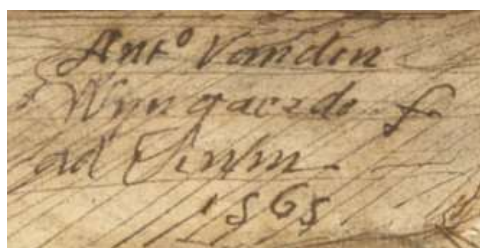 Antº Vanden
Wyngaerde f
ad vivum
1565